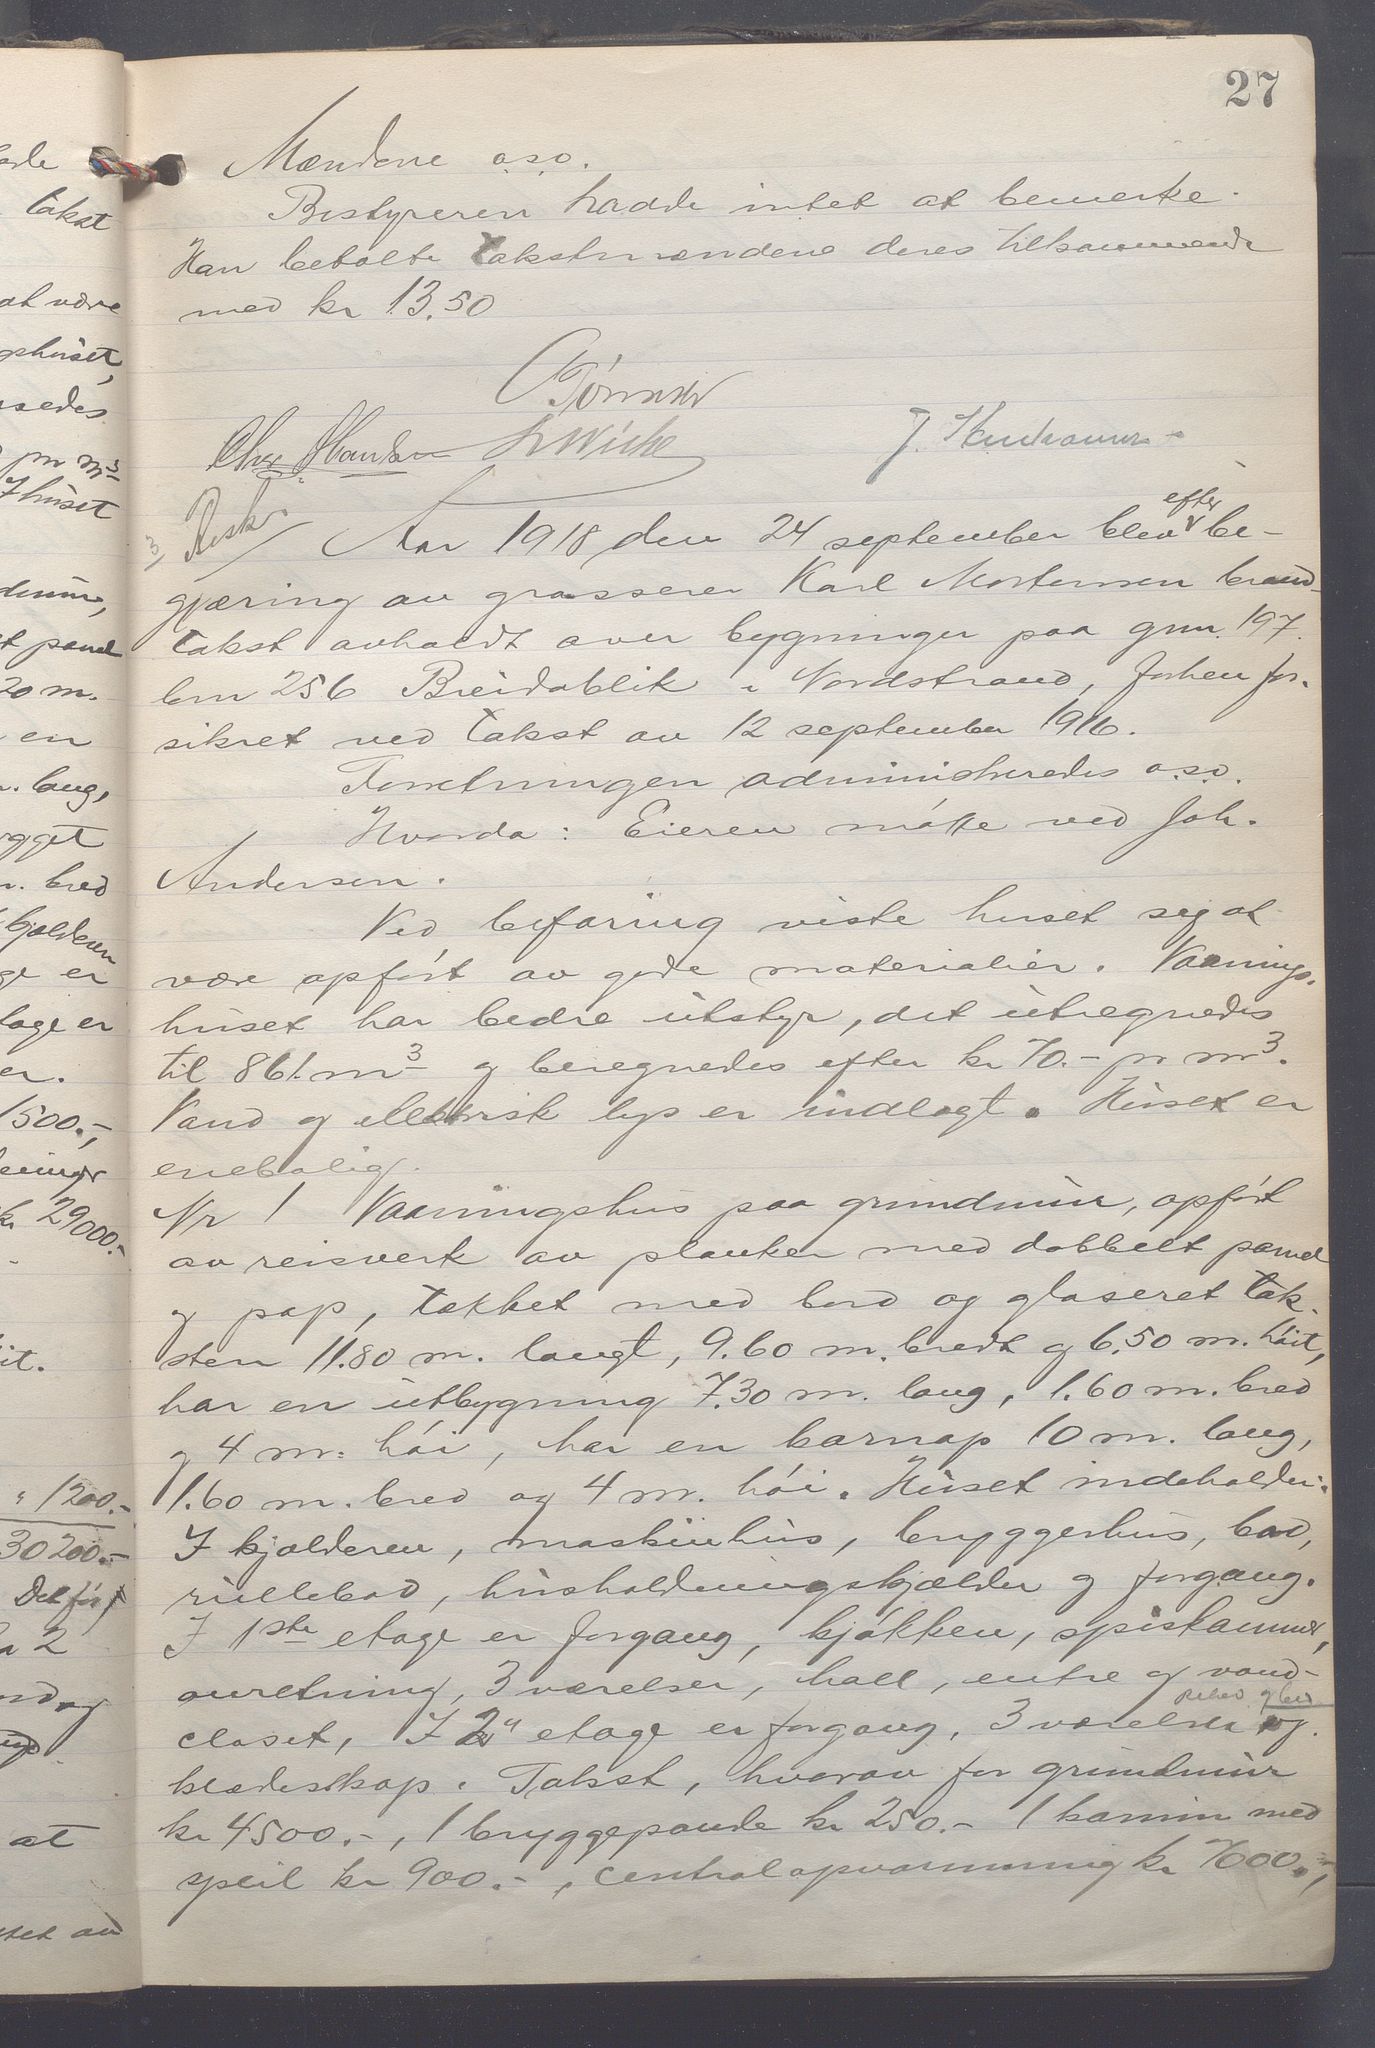 27
Mændene o.s.v.
Bestyreren hadde intet at bemerke.
Han betalte takstmændene deres tilkommende
med kr 13.50
3, Besk.
Aar 1918 den 24 september blev efter be-
gjæring av grosserer Karl Mortensen brand-
takst avholdt over bygninger paa gnr. 197.
bnr 256 Breidablik i Nordstrand, forhen for-
sikret ved takst av 12 september 1916.
Forretningen administreredes o.s.v.
Hvorda: Eieren møtte ved Joh.
Andersen.
Ved befaring viste huset sig at
være opført av gode materialier. Vaanings-
huset har bedre utstyr, det utregnedes
til 861 m3 og beregnedes efter kr 70.- pr m3.
Vand og elektrisk lys er indlagt. Huset er
enebolig.
Nr 1 Vaaningshus paa grundmur, opført
av reisverk av planker med dobbelt panel
og pap, tækket med bord og glaseret tak-
sten 11.80 m. langt, 9.60 m. bredt og 6.50 m. høit,
har en utbygning 7.30 m. lang, 1.60 m. bred
og 4 m. høi, har en karnap 10 m. lang,
1.60 m. bred og 4 m. høi. Huset indeholder:
I kjælderen, maskinhus, bryggerhus, bod,
rullebod, husholdningskjælder og forgang.
I 1ste etage er forgang, kjøkken, spiskammer,
anretning, 3 værelser, hall, entre og vand-
closet, I 2" etage er forgang, 3 værelser og
klædeskap. Takst, hvorav for grundmur
kr 4500.-, 1 bryggepande kr 250.- 1 kamin med
speil kr 900.-, centralopvarmning kr 7000.-,
takst
at være
pr m3
I huset
20 m.
en
lang,
bred
kjælderen
er
er
er.
1500.-,
kr 29000.-
" 1200.-
30200.-
Det før
2
at